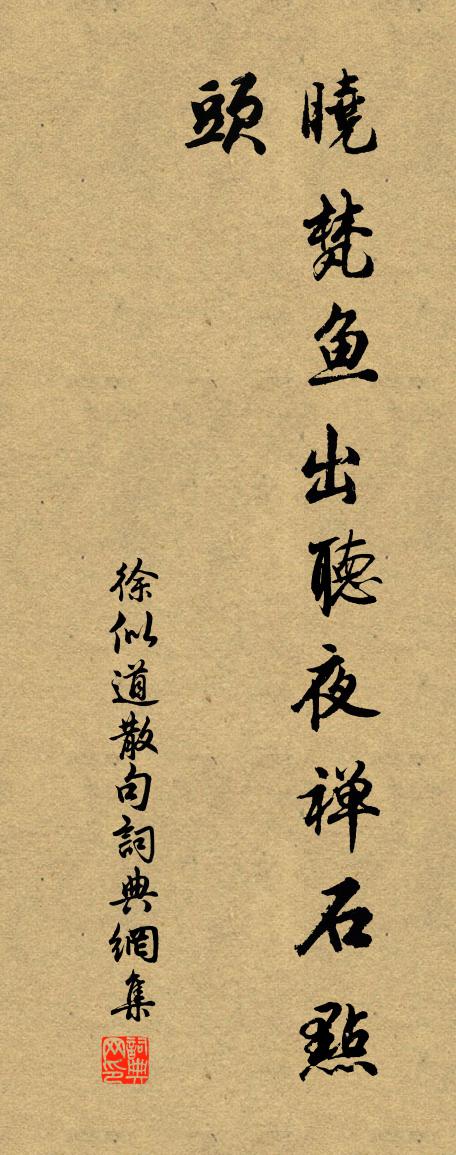 曉梵鱼出聽夜禅石點
頭
徐似道散句詞典網集
詞典
网印